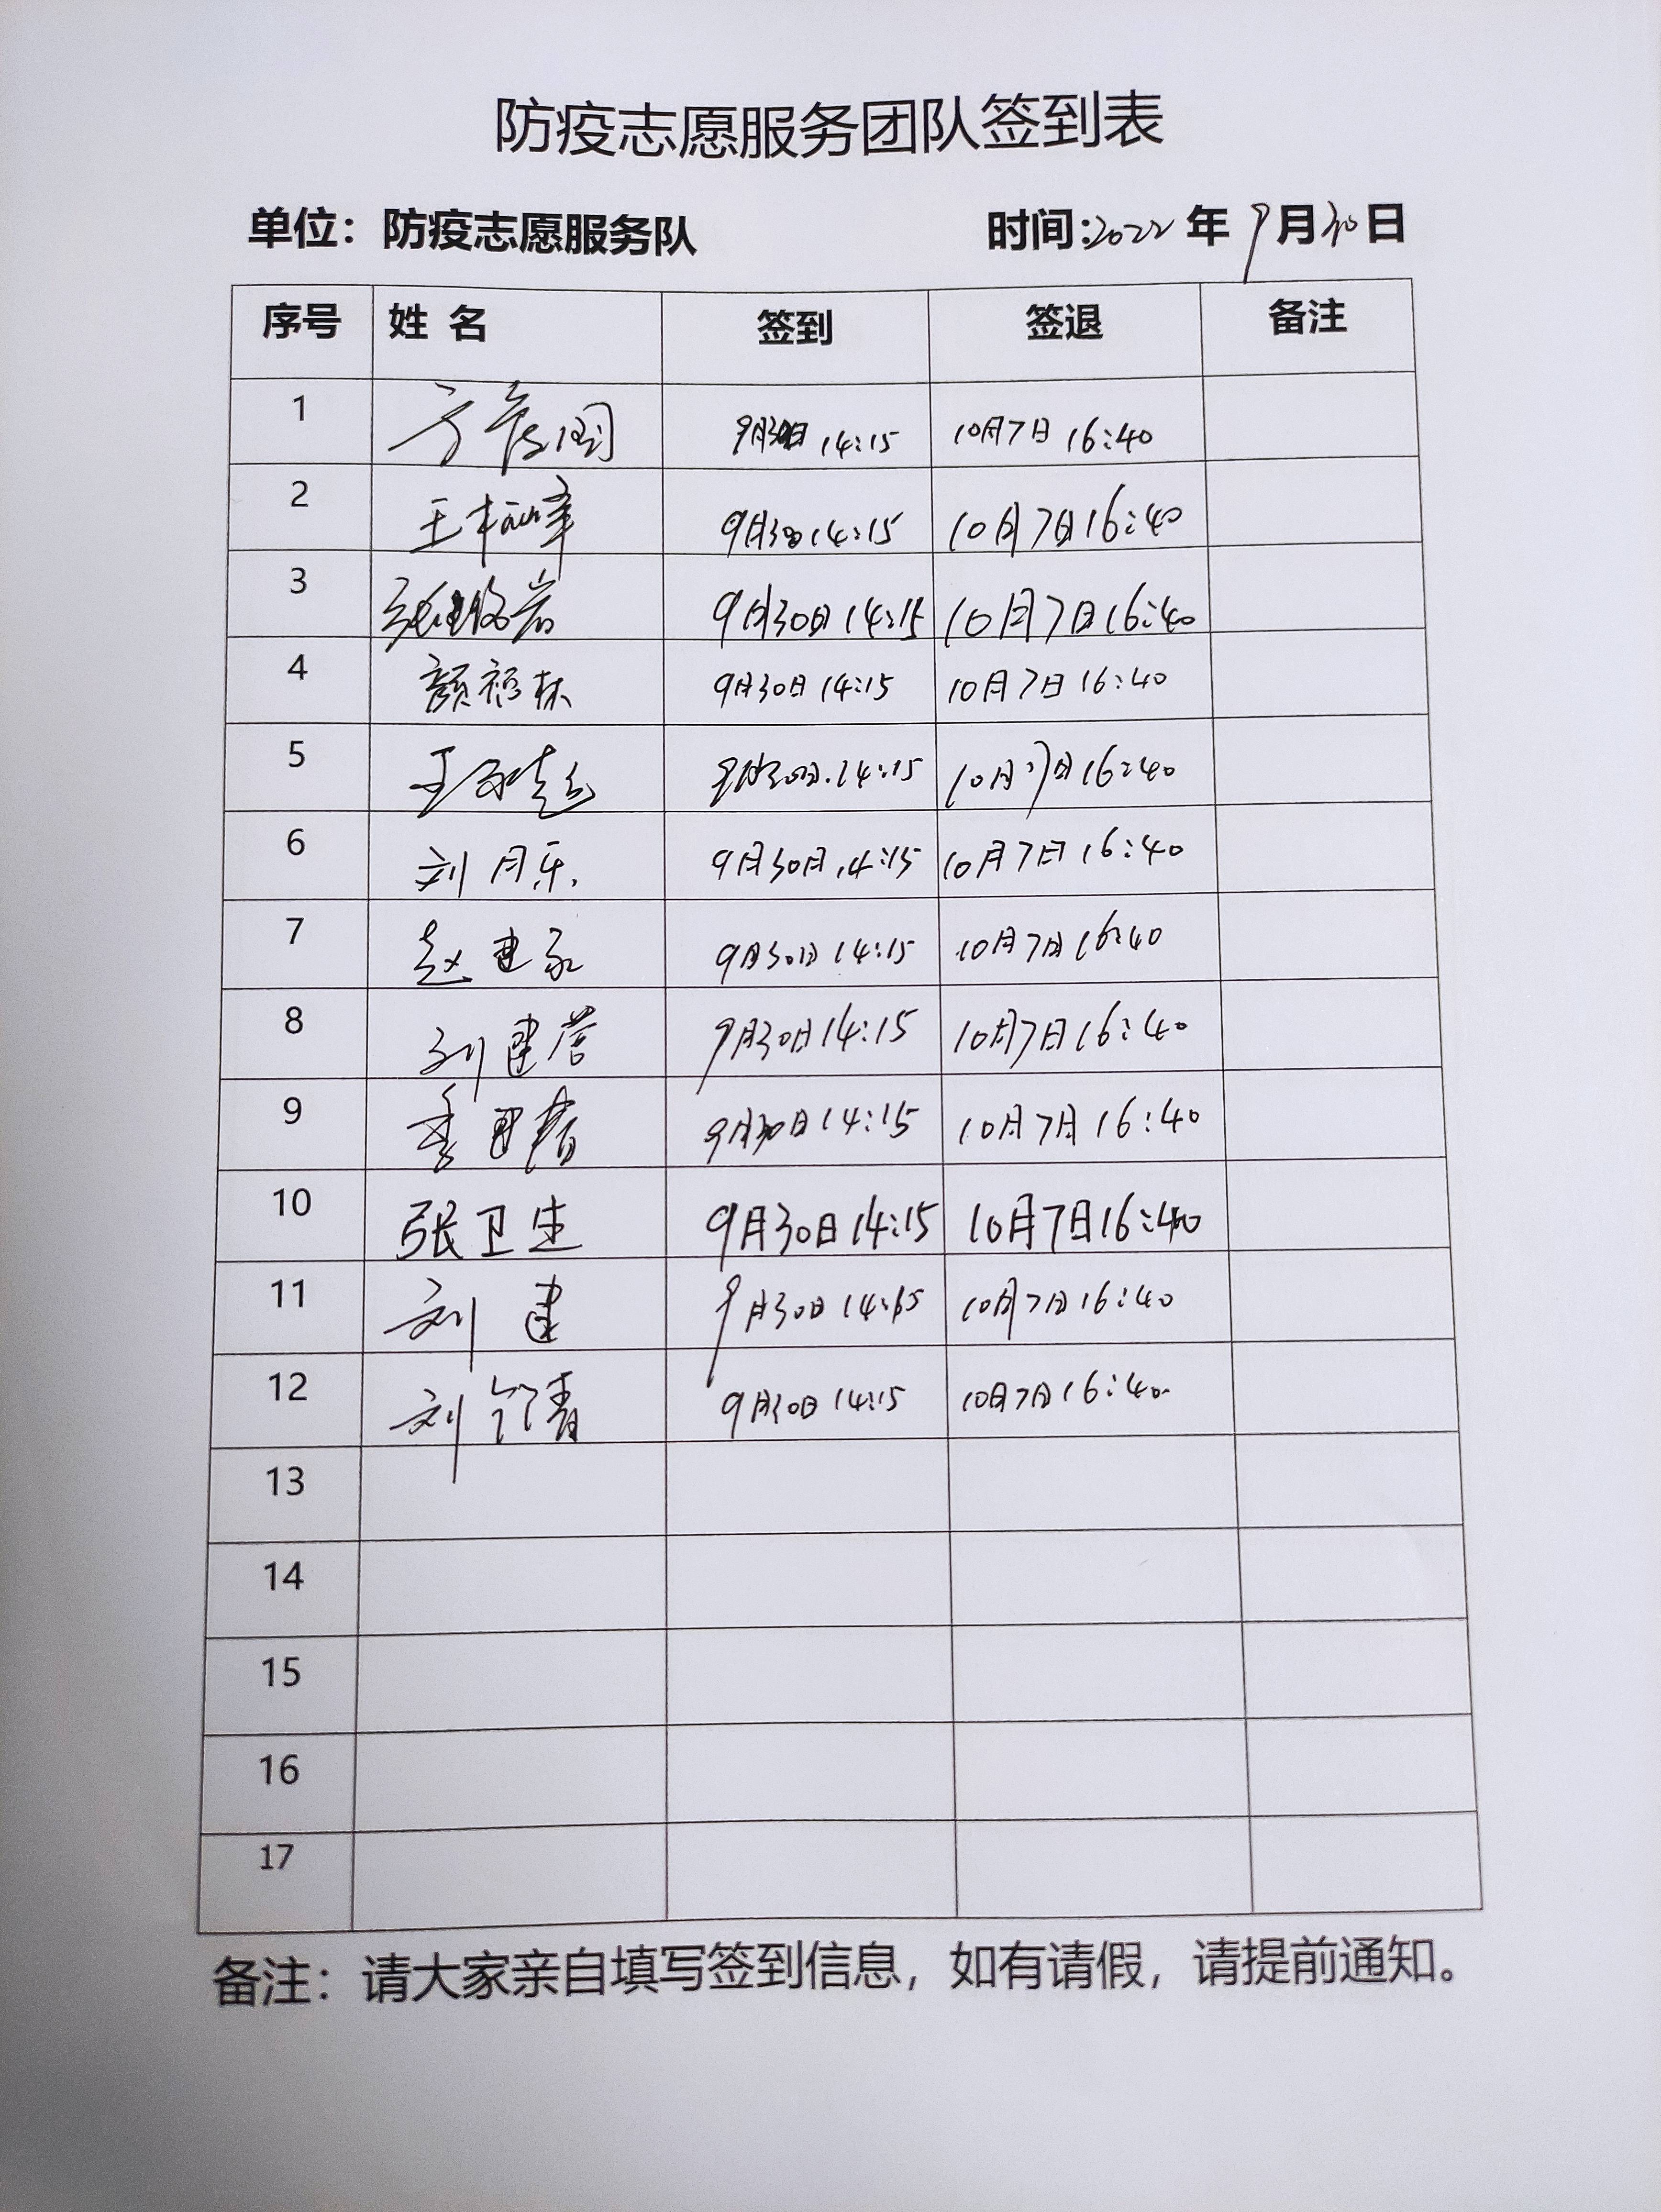 防疫志愿服务团队签到表
单位：防疫志愿服务队 时间:2022年9月30日
序号 姓名 签到 签退 备注
1 9月30日 14:15 10月7日 16:40
2 王 峰 9月30 14:15 10月7日 16:40
3 张 岩 9月30日 14:15 10月7日 16:40
4 颜福林 9月30日 14:15 10月7日 16:40
5 王 9月30日.14:15 10月7日 16:40
6 刘月乐. 9月30日 14:15 10月7日 16:40
7 赵建永 9月30日 14:15 10月7日 16:40
8 刘建营 9月30日 14:15 10月7日 16:40
9 9月30日 14:15 10月7日 16:40
10 张卫生 9月30日 14:15 10月7日 16:40
11 刘建 9月30日 14:15 10月7日 16:40
12 刘 青 9月30日 14:15 10月7日 16:40
13
14
15
16
17
备注：请大家亲自填写签到信息，如有请假，请提前通知。